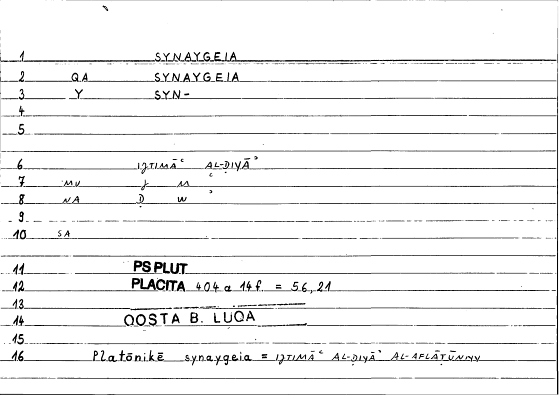 1 SYNAYGEIA
2 QA SYNAYGEIA
3 Y SYN-
4
5
6 IJTIMĀʿ AL-ḌIYĀʾ
7 MU J M ʿ
8 NA Ḍ W ʾ
9
10 SA
11 PS PLUT
12 PLACITA 404 a 14 f. = 56,21
13
14 QOSTA B. LUQA
15
16 Platōnikē synaygeia = IJTIMĀʿ AL-ḌIYĀʾ AL-AFLĀṬŪNIYY